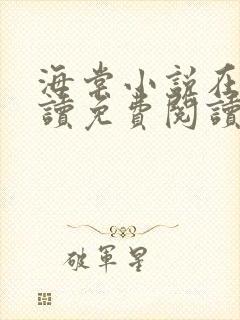 海棠小說在
讀免費閱讀
破軍星